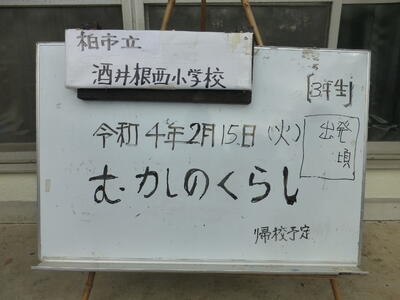 柏市立
酒井根西小学校
[3年生]
令和4年2月15日(火)
出発頃
むかしのくらし
帰校予定